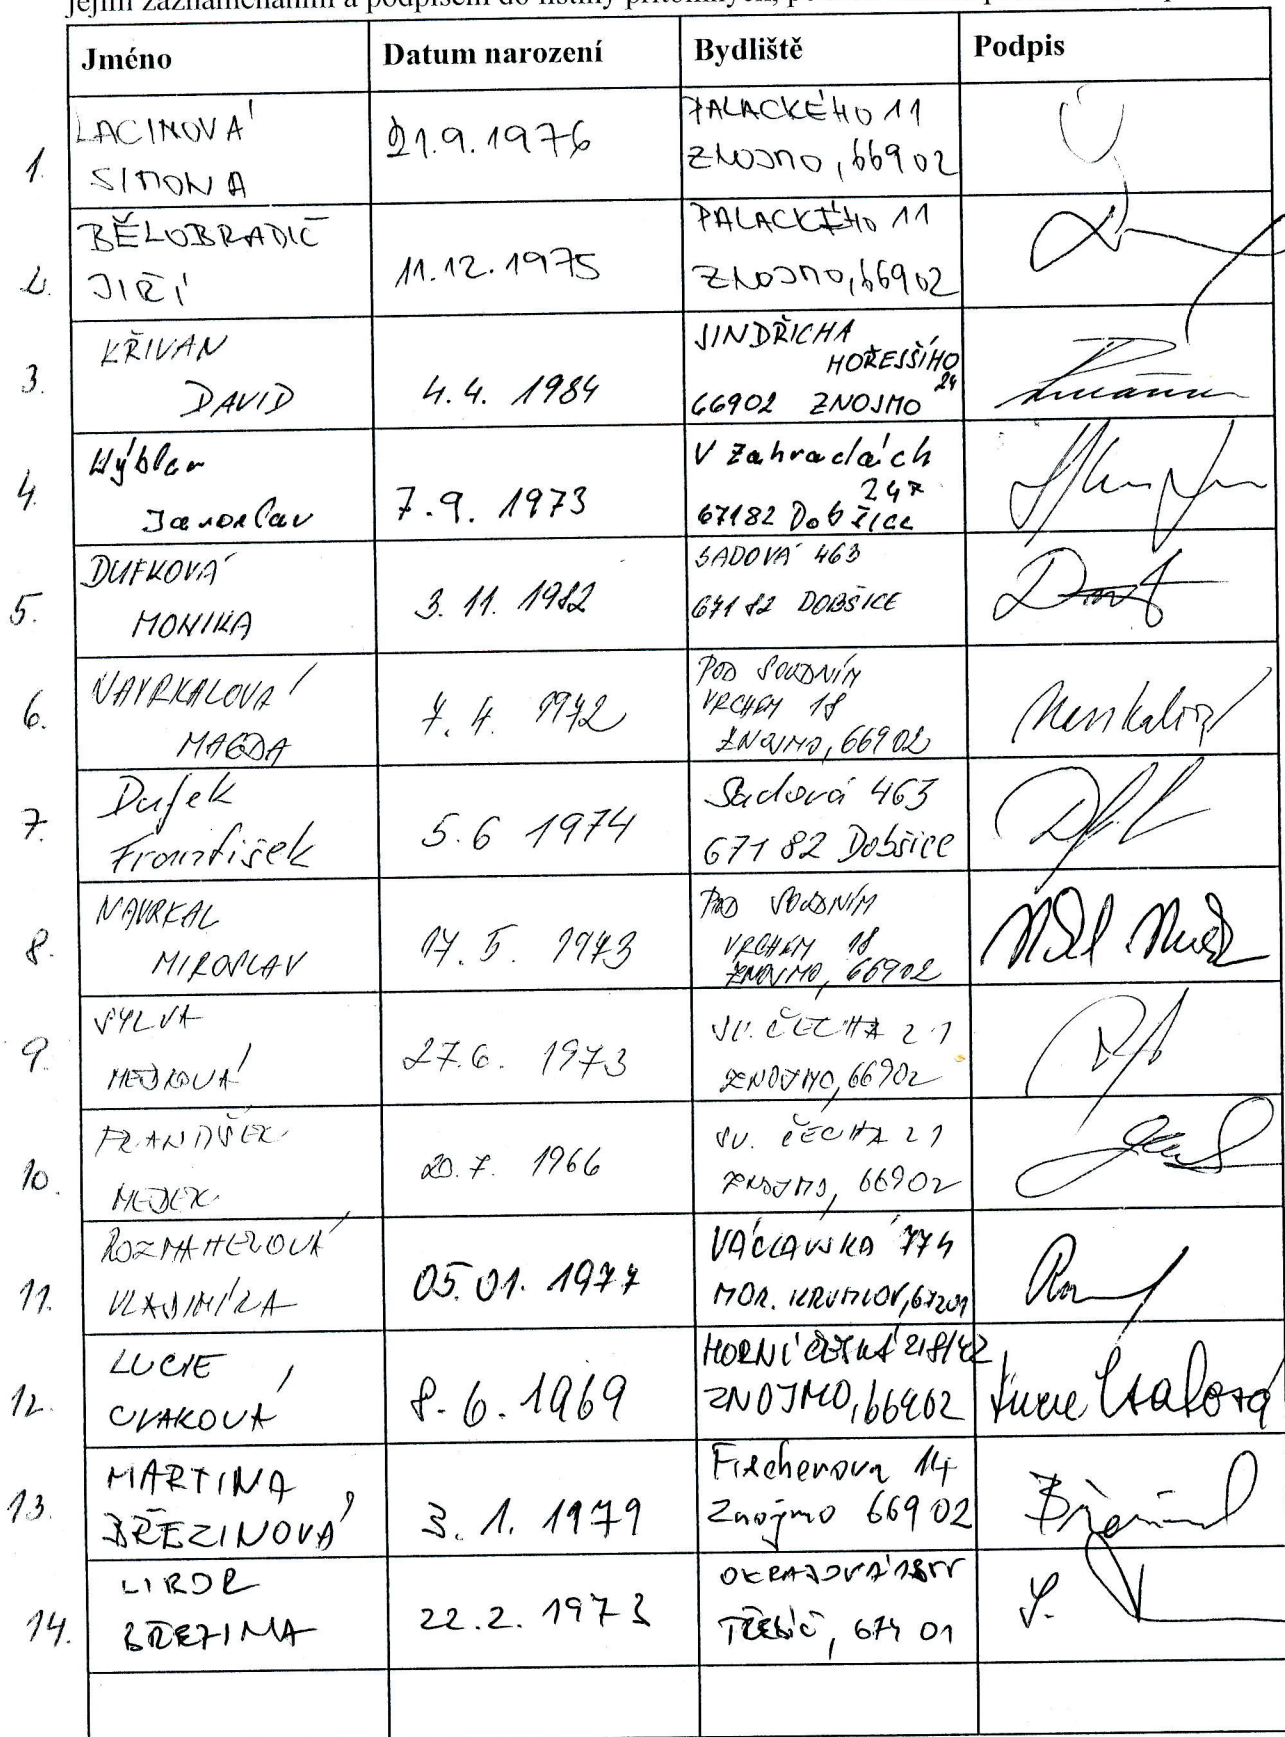 Jméno Datum narození Bydliště Podpis
1. LACINOVÁ SIMONA 21.9.1976 PALACKÉHO 11 ZNOJMO, 66902
2. BĚLOBRADIČ JIŘÍ 11.12.1975 PALACKÉHO 11 ZNOJMO, 66902
3. KŘIVAN DAVID 4.4. 1984 JINDŘICHA HOŘEJŠÍHO 24 66902 ZNOJMO
4. Výbler Jaroslav 7.9. 1973 V Zahradách 247 67182 Dobšice
5. DUFKOVÁ MONIKA 3.11.1982 SADOVÁ 463 671 82 DOBŠICE
6. NAVRKALOVÁ MAGDA 7.4. 1972 POD SOUDNÍM VRCHEM 18 ZNOJMO, 66902
7. Dufek František 5.6 1974 Sadová 463 671 82 Dobšice
8. NAVRKAL MIROSLAV 17.5. 1973 POD SOUDNÍM VRCHEM 18 ZNOJMO, 66902
9. SYLVA MEDKOVÁ 27.6. 1973 SV. ČECHA 21 ZNOJMO, 66902
10. MEDEK 20.7. 1966 SV. ČECHA 21 ZNOJMO, 66902
11. VLADIMÍRA 05.01.1977 VÁCLAVSKÁ 774 MOR. KRUMLOV, 67201
12. LUCIE 8.6.1969 HORNÍ ČESKÁ 218/42 ZNOJMO, 66902
13. MARTINA BŘEZINOVÁ 3.1. 1979 Fischerova 14 Znojmo 66902
14. LIBOR BŘEZINA 22.2. 1973 TŘEBÍČ, 674 01